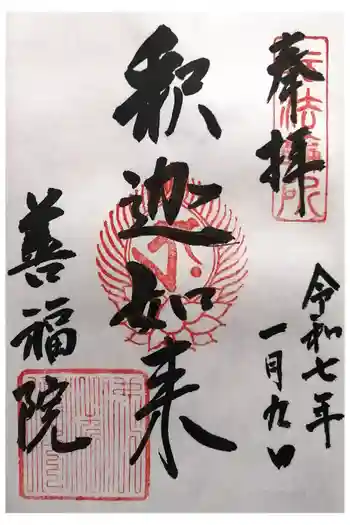 奉拝
令和七年
一月九日
釈迦如来
善福院